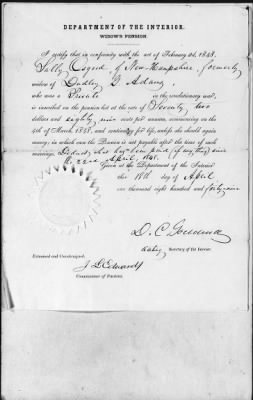 DEPARTMENT OF THE INTERIOR.
WIDOW'S PENSION.
I certify that in conformity with the act of February 2d, 1848,
Sally Osgood of New-Hampshire formerly
widow of Dudley G Adams
who was a Private in the revolutionary war,
is inscribed on the pension list at the rate of Seventy two
dollars and eighty nine cents per annum, commencing on the
4th of March, 1848, and continuing for life, unless she should again
marry; in which case the Pension is not payable after the time of such
marriage. Deduct what has been paid (if any thing) since
the 22nd April, 1848.
Given at the Department of the Interior
this 18th day of April
one thousand eight hundred and forty-nine
D. C.
Acting Secretary of the Interior.
Examined and Countersigned.
J. L. Edwards
Commissioner of Pensions.